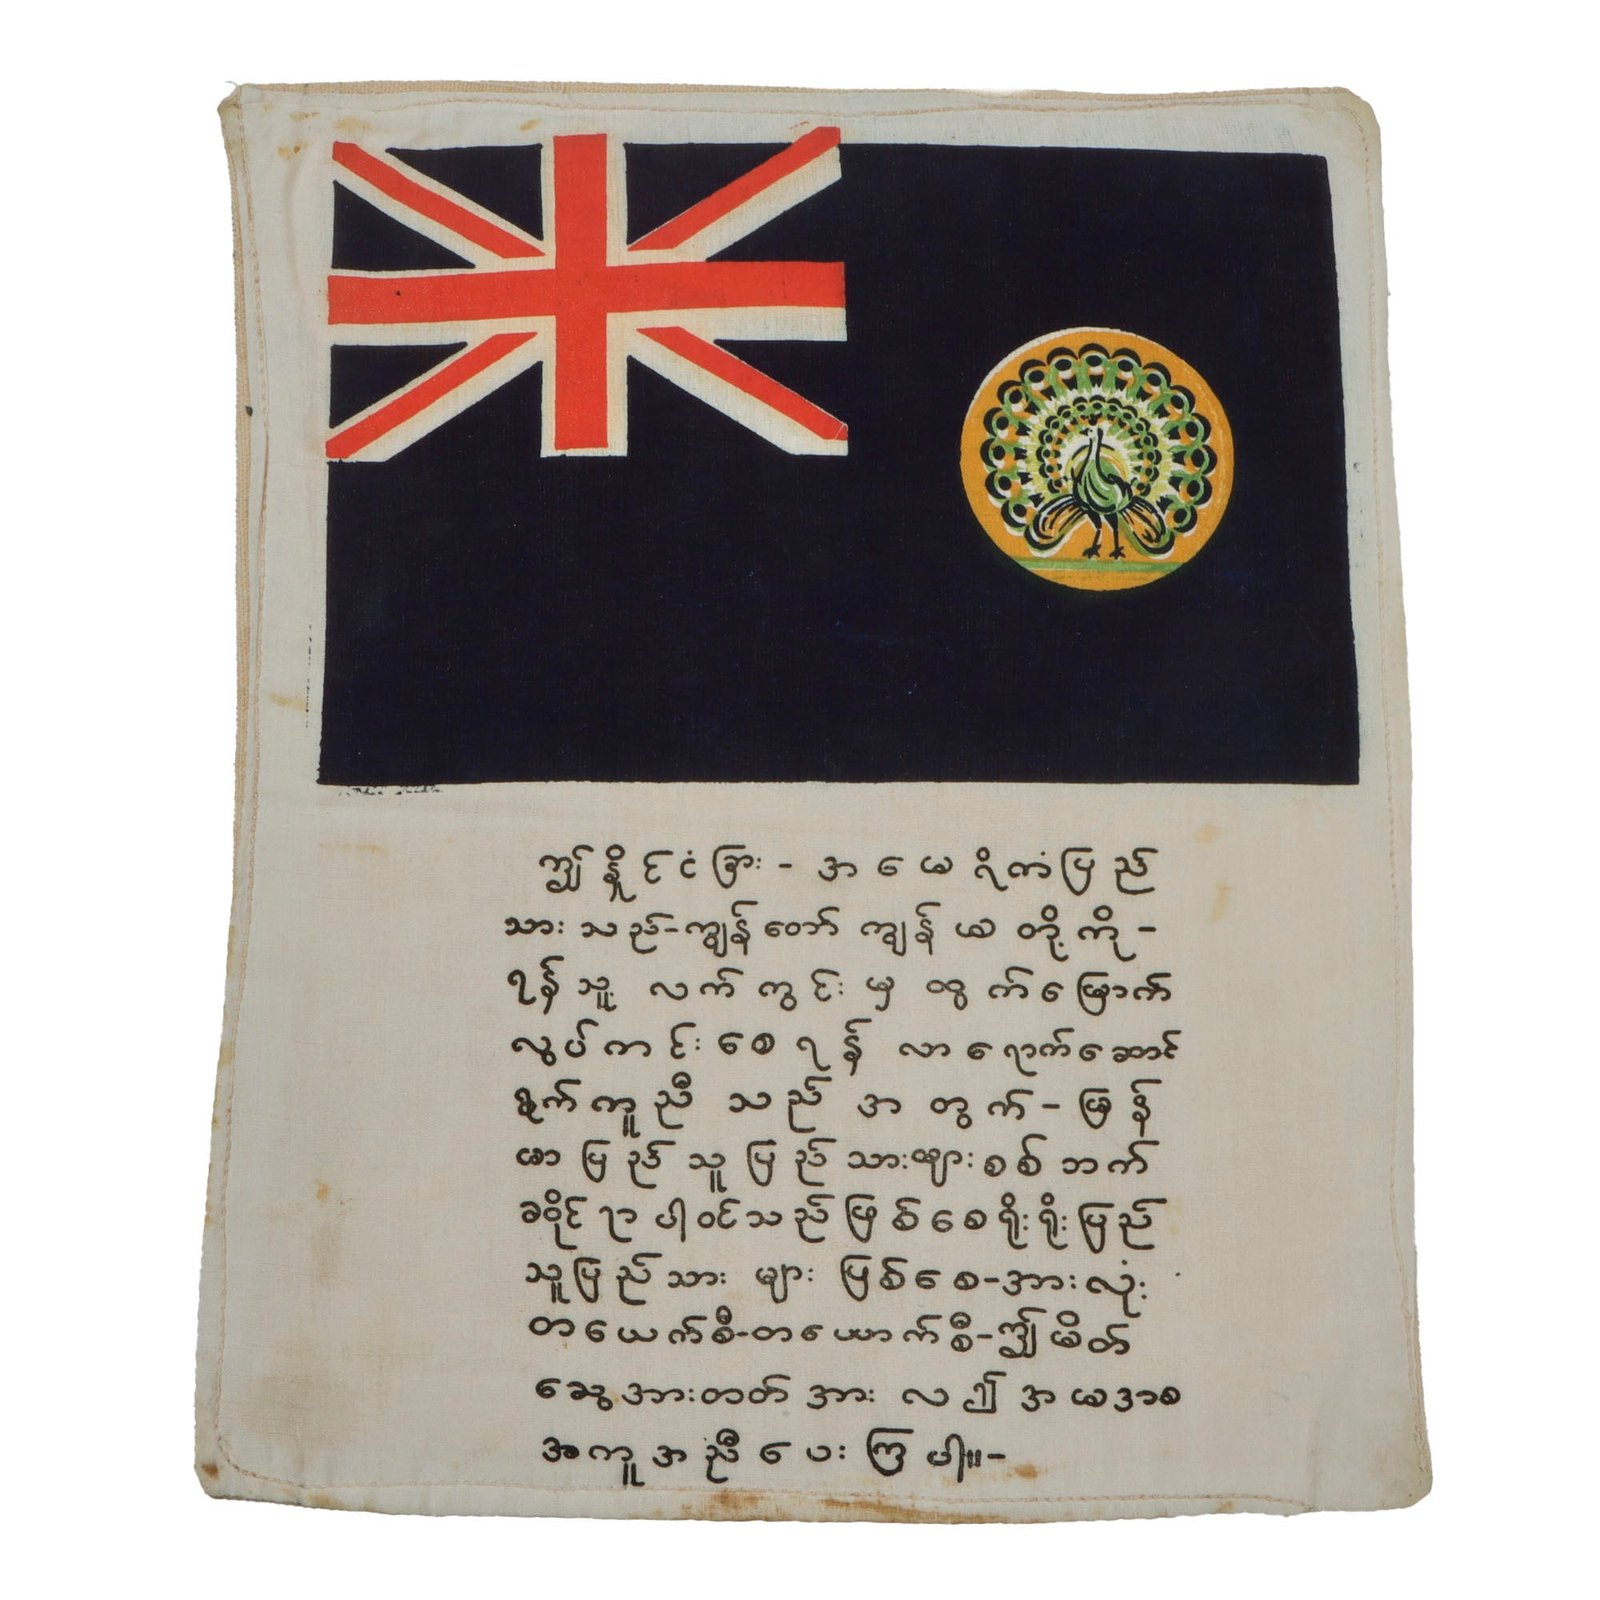 ဤနိုင်ငံခြား - အမေရိကံပြည်
သားသည်-ကျွန်တော် ကျွန်မ တို့ကို -
ရန်သူ့ လက်တွင်းမှ ထွက်မြောက်
လွပ်ကင်းစေရန် လာရောက်ဆောင်
ရွက်ကူညီ သည် အတွက် - မြန်
မာပြည်သူပြည်သားများစစ်ဘက်
ခဝိုင်ရာပါဝင်သည်ဖြစ်စေရိုးရိုးပြည်
သူပြည်သား များ ဖြစ်စေ-အားလုံး
တယောက်စီ-တယောက်စီ-ဤမိတ်
ဆွေအားတတ်အား လ၍ အယအာစ
အကူအညီပေးကြပါ။-